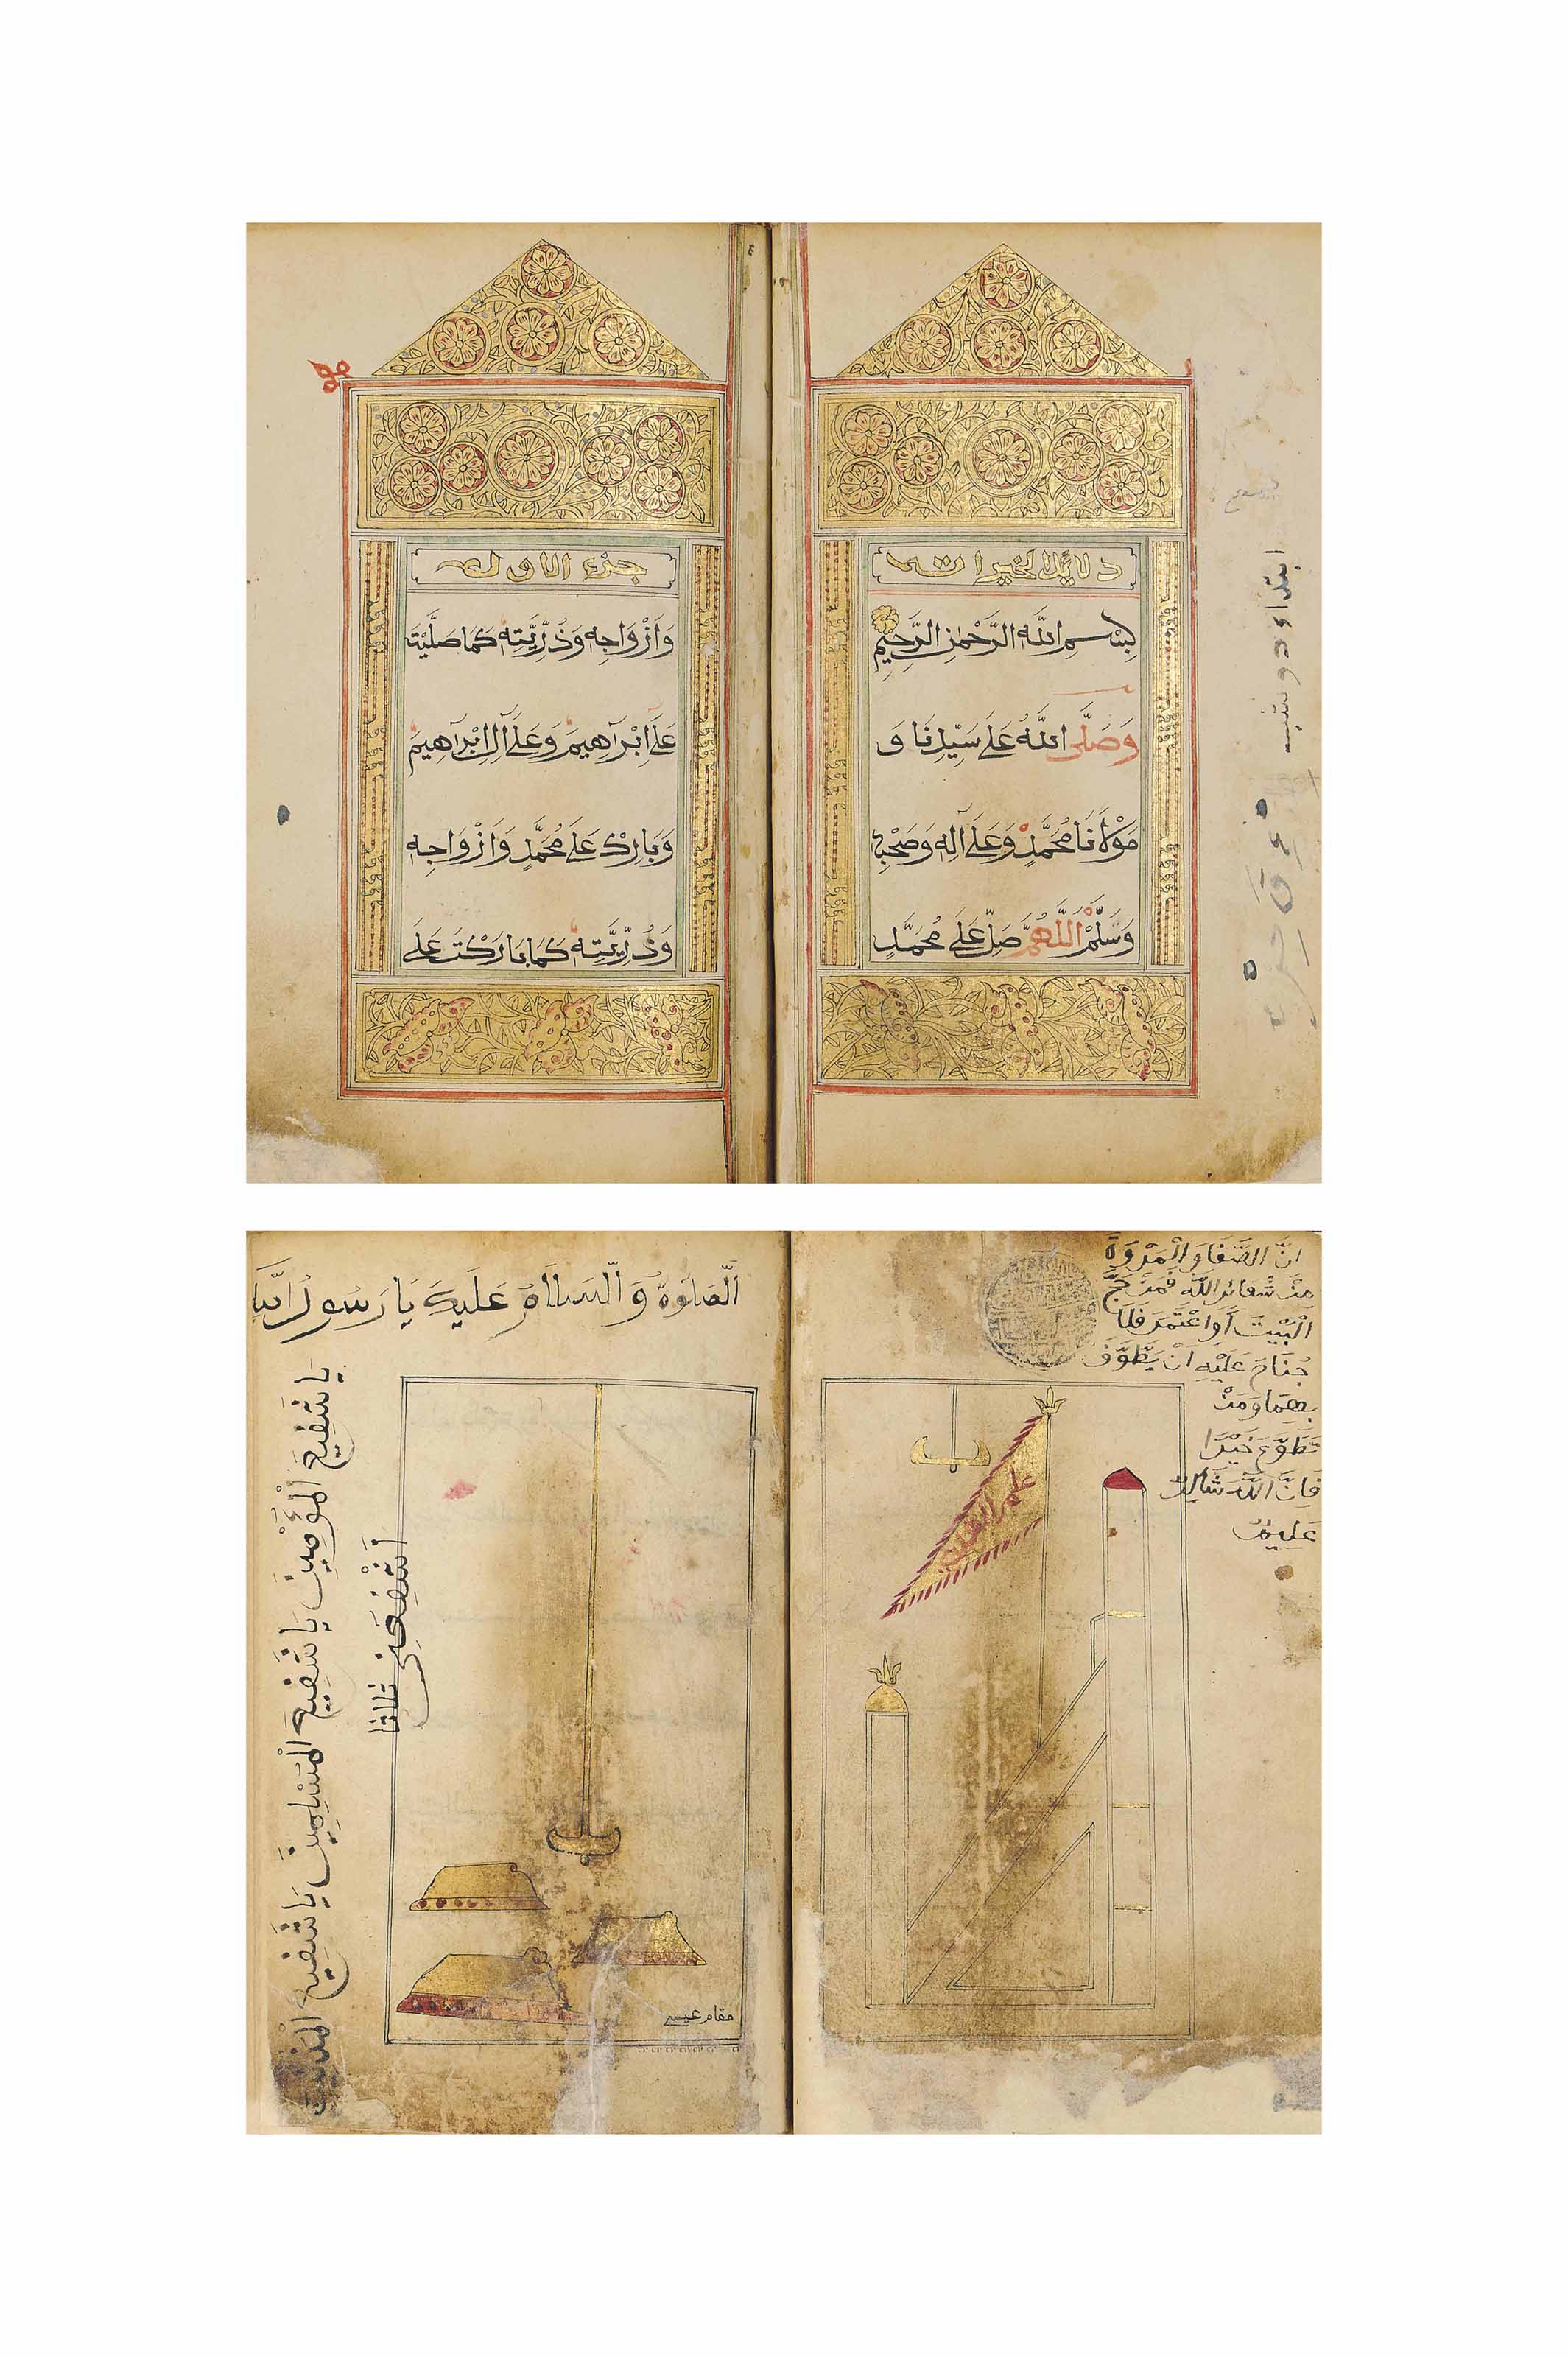 دلائل الخيرات
بِسْمِ اللَّهِ الرَّحْمٰنِ الرَّحِيمِ
وَصَلَّى اللَّهُ عَلَى سَيِّدِنَا وَ
مَوْلَانَا مُحَمَّدٍ وَعَلَى آلِهِ وَصَحْبِهِ
وَسَلَّمْ اَللَّهُمَّ صَلِّ عَلَى مُحَمَّدٍ
ابتداء دوشنبه
جزء الاول
وَاَزْوَاجِهِ وَذُرِّيَّتِهِ كَمَا صَلَّيْتَ
عَلَى اِبْرَاهِيمَ وَعَلَى آلِ اِبْرَاهِيمَ
وَبَارِكْ عَلَى مُحَمَّدٍ وَاَزْوَاجِهِ
وَذُرِّيَّتِهِ كَمَا بَارَكْتَ عَلَى
اِنَّ الصَّفَا وَالْمَرْوَةَ
مِنْ شَعَائِرِ اللَّهِ فَمَنْ حَجَّ
الْبَيْتَ أَوِ اعْتَمَرَ فَلَا
جُنَاحَ عَلَيْهِ اَنْ يَطَّوَّفَ
بِهِمَا وَمَنْ
تَطَوَّعَ خَيْرًا
فَاِنَّ اللَّهَ شَاكِرٌ
عَلِيمٌ
اَلصَّلَوةُ وَالسَّلَامُ عَلَيْكَ يَا رَسُولَ اللَّهِ
يَا شَفِيعَ الْمُؤْمِنِينَ يَا شَفِيعَ الْمُسْلِمِينَ يَا شَفِيعَ الْمُذْنِبِينَ
اِشْفَعْنِى
ثلاثا
مقام عيسى